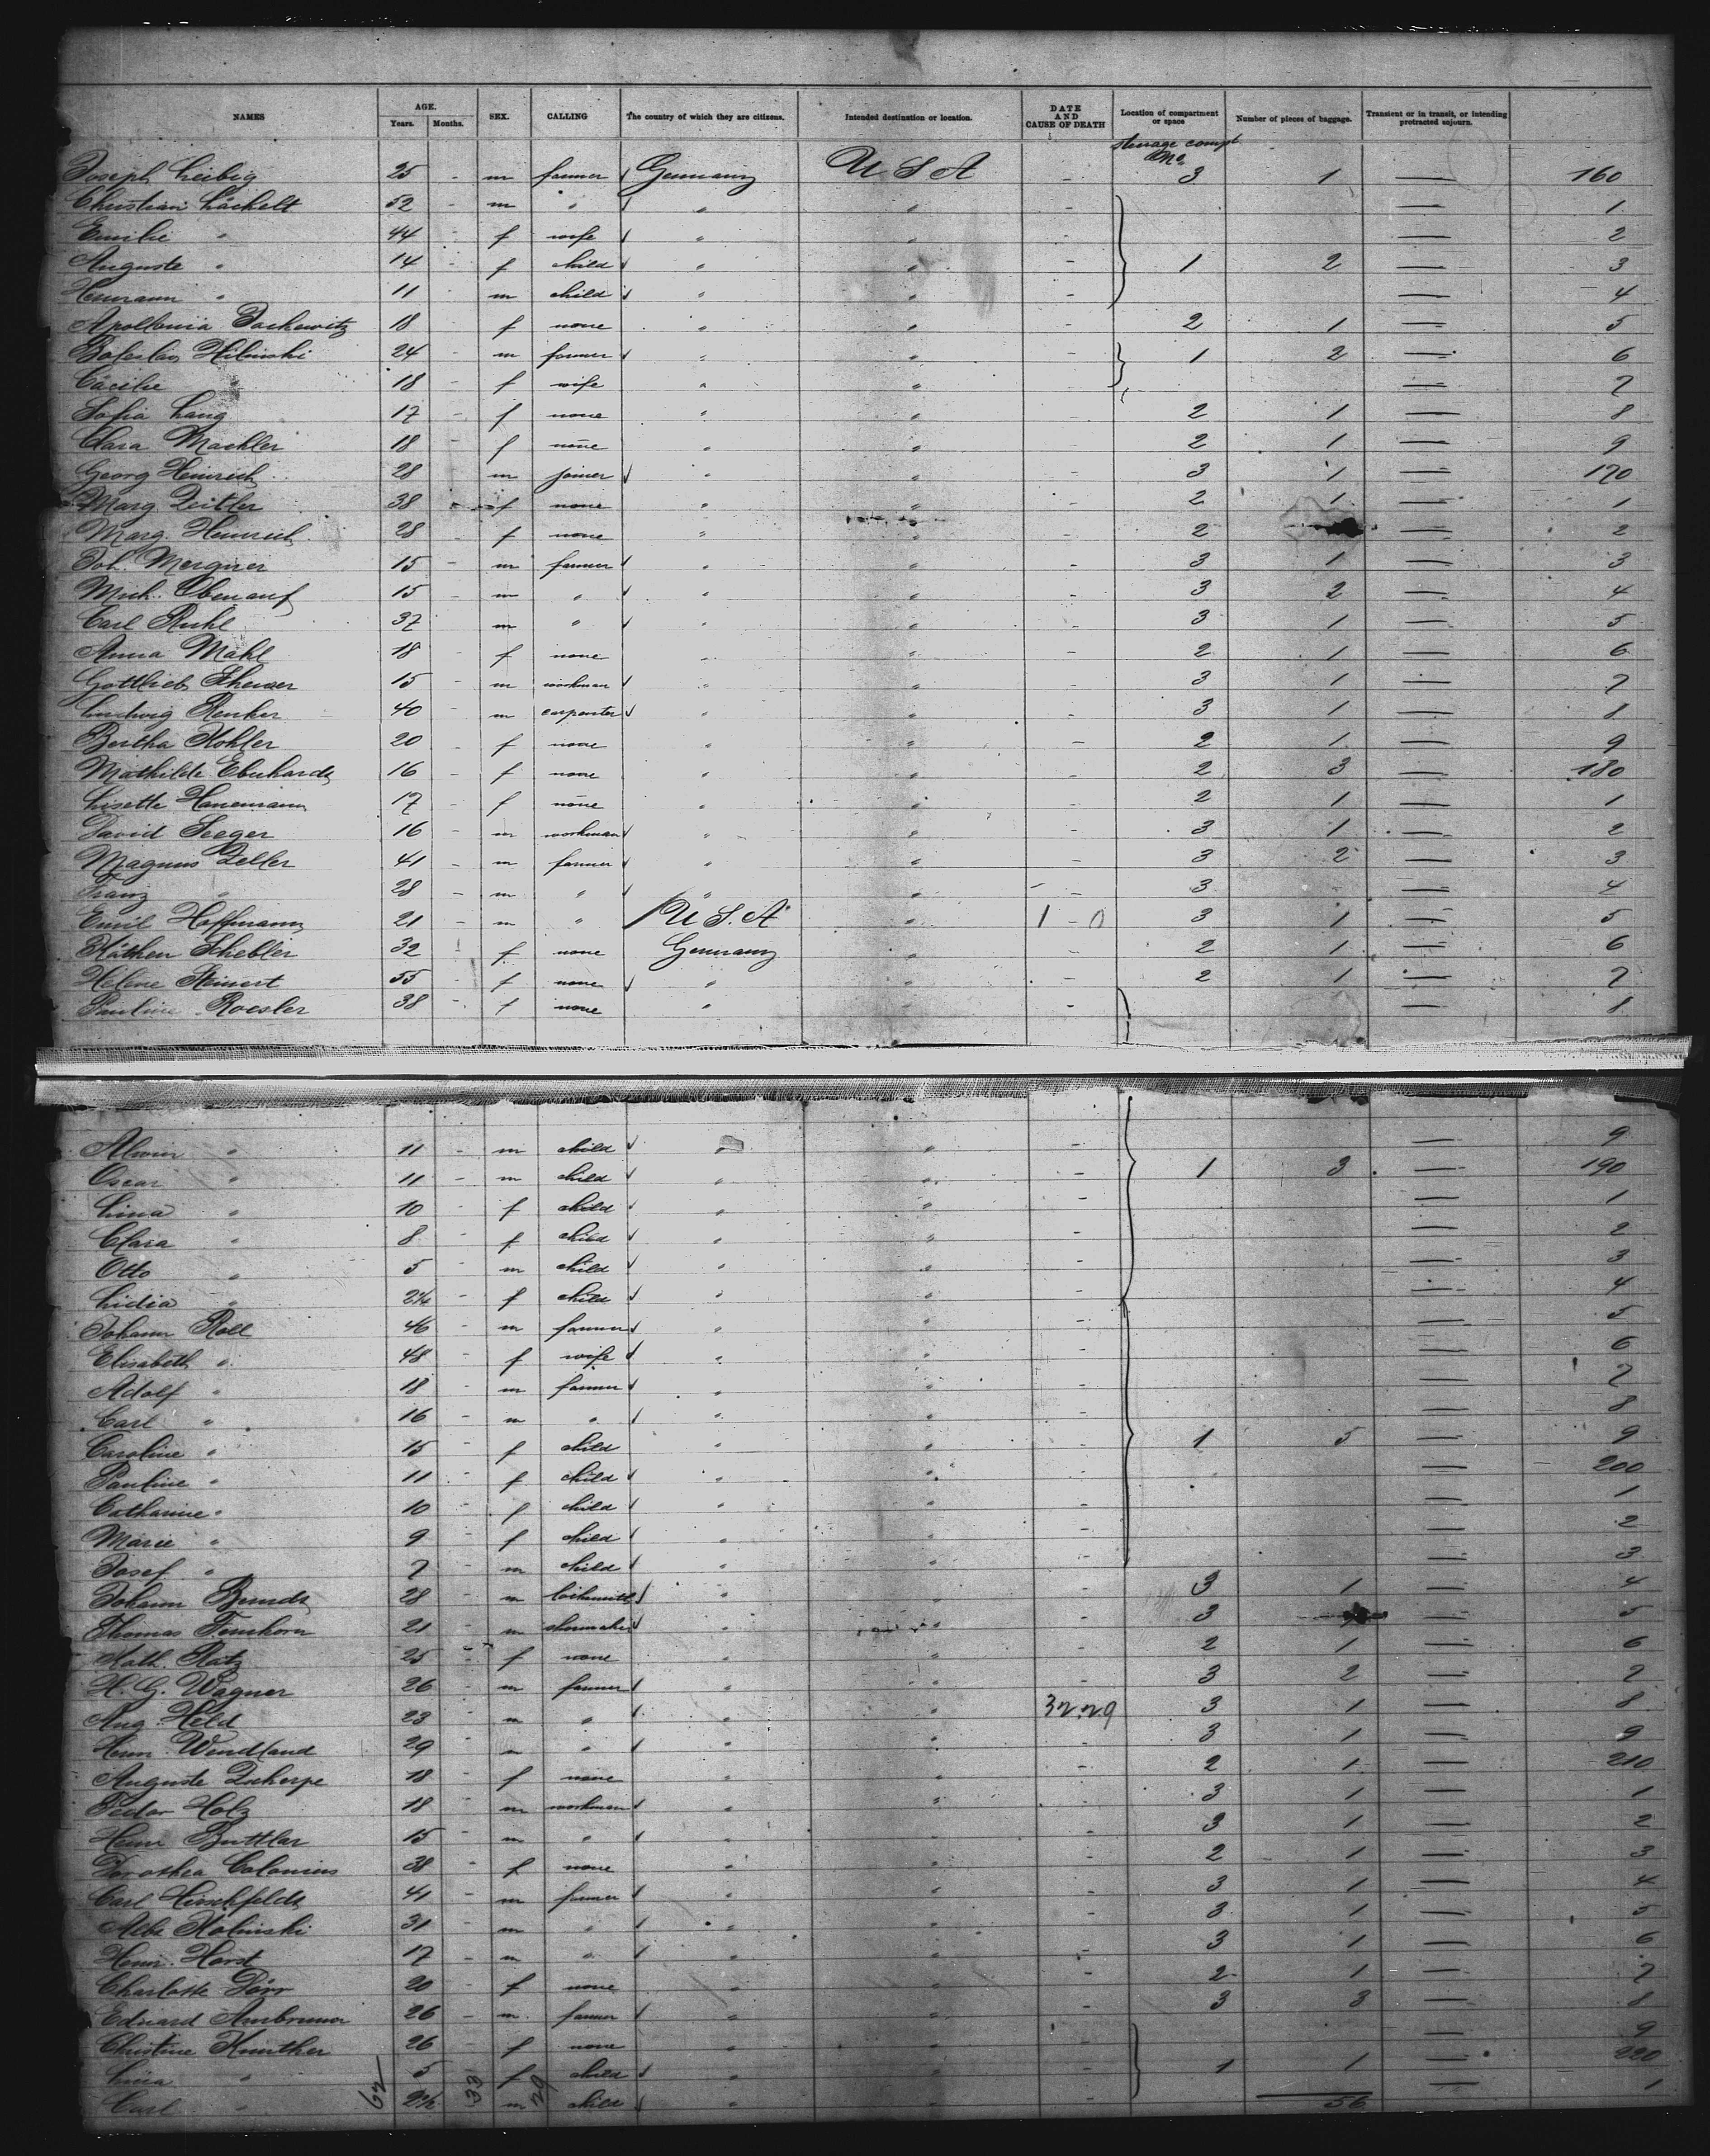 NAMES AGE. Years. Months. SEX. CALLING The country of which they are citizens. Intended destination or location. DATE AND CAUSE OF DEATH Location of compartment or space Number of pieces of baggage. Transient or in transit, or intending protracted sojourn.
steerage compt No
Joseph Leibig 25 - m farmer ✓ Germany U S A - 3 1 — 160
Christian Läckelt 52 - m " ✓ " " - — 1
Emilie " 44 - f wife ✓ " " - — 2
Auguste " 14 - f child ✓ " " - 1 2 — 3
Hermann " 11 - m child ✓ " " - — 4
Apollonia 18 - f none " " - 2 1 — 5
Boleslav Hilinski 24 - m farmer ✓ " " - 1 2 — 6
Cäcilie " 18 - f wife " " — 7
Sofia Lang 17 - f none " " - 2 1 — 8
Clara Machler 18 f none " " - 2 1 — 9
Georg Heinrich 28 m joiner ✓ " " - 3 1 — 170
Marg. Zeitler 38 - f none " " - 2 1 — 1
Marg. Heinrich 28 - f none " " 2 — 2
Joh. Mergner 15 - m farmer ✓ " " - 3 1 — 3
Mich. Obenauf 15 - m " ✓ " " - 3 2 — 4
Carl Ruhl 37 m " ✓ " " - 3 1 — 5
Anna Mahl 18 - f none " " - 2 1 — 6
Gottlieb 15 - m workman ✓ " " - 3 1 — 7
Ludwig Renker 40 - m carpenter ✓ " " - 3 1 — 8
Bertha Kohler 20 - f none " " - 2 1 — 9
Mathilde Eberhardt 16 - f none " " - 2 3 — 180
Lisette Hanemann 17 - f none " " - 2 1 — 1
David Seeger 16 - m workman ✓ " " - 3 1 — 2
Magnus Zeller 41 - m farmer ✓ " " - 3 2 — 3
Franz " 28 - m " ✓ " " - - 3 — 4
Emil Hoffmann 21 - m " U.S.A " 1 - 0 3 1 — 5
Käthen Schebler 32 f none Germany " 2 1 — 6
Helene Steinert 55 - f none ✓ " " - 2 1 — 7
Pauline Roesler 38 - f none " " - — 8
Alwin " 11 - m child ✓ " " - — 9
Oscar " 11 - m child ✓ " " - 1 3 — 190
Lina " 10 - f child " " - — 1
Clara " 8 - f child ✓ " " - — 2
Otto " 5 - m child ✓ " " - — 3
Lidia " 2½ - f child ✓ " " - — 4
Johann Roll 46 - m farmer ✓ " " - — 5
Elisabeth " 48 - f wife ✓ " " - — 6
Adolf " 18 - m farmer ✓ " " - — 7
Carl " 16 - m " ✓ " " - — 8
Caroline " 15 - f child " " - 1 5 — 9
Pauline " 11 - f child ✓ " " - — 200
Catharine " 10 - f child ✓ " " - — 1
Marie " 9 - f child ✓ " " - — 2
Josef " 7 - m child ✓ " " - — 3
Johann 28 - m locksmith ✓ " " - 3 1 — 4
Thomas 21 - m shoemaker ✓ " " - 3 — 5
Kath. Ratz 25 f none " " - 2 1 — 6
H. G. Wagner 26 - m farmer ✓ " " - 3 2 — 7
Aug. Held 23 - m " ✓ " " 32.29 3 1 — 8
Herm. Wendland 29 - m " ✓ " " - 3 1 — 9
Auguste Zscherpe 18 - f none " " - 2 1 — 210
Fedor Holz 18 - m workman ✓ " " 3 1 — 1
Herm Buttlar 15 - m " ✓ " " - 3 1 — 2
Dorothea Colonius 38 - f none " " - 2 1 — 3
Carl Hirschfeldt 41 - m farmer ✓ " " - 3 1 — 4
Kolinski 31 - m " ✓ " " 3 1 — 5
Heinr. Horst 17 - m " ✓ " " - 3 1 — 6
Charlotte Dörr 20 f none " " - 2 1 — 7
Eduard 26 - m farmer ✓ " " - 3 3 — 8
Christine Künther 26 - f none " " - — 9
Lina " 5 f child ✓ " " - 1 1 — 220
Carl " 2½ m child ✓ " " - — 1
62 33 29 56